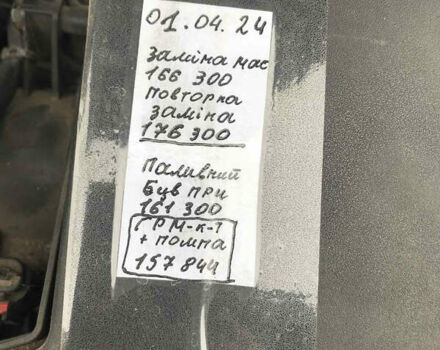 01.04.24
Заміна мас
166 300
Повторна
заміна
176 300
Паливний
був при
161 300
ГРМ-к-т
+ помпа
157 844